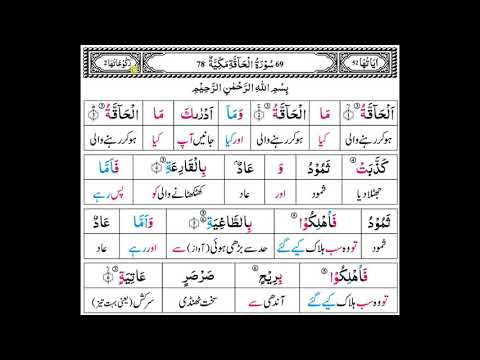 اٰیَاتُهَا 52 69 سُوْرَةُ الْحَآقَّةِ مَكِّيَّةٌ 78 رُكُوْعَاتُهَا 2
بِسْمِ اللّٰهِ الرَّحْمٰنِ الرَّحِيْمِ
اَلْحَآقَّةُ ۙ مَا الْحَآقَّةُ ۚ وَمَاۤ اَدْرٰىكَ مَا الْحَآقَّةُ ؕ
ہو کر رہنے والی کیا ہو کر رہنے والی اور کیا جانیں آپ کیا ہو کر رہنے والی
كَذَّبَتْ ثَمُوْدُ وَ عَادٌۢ بِالْقَارِعَةِ فَاَمَّا
جھٹلا دیا ثمود اور عاد کھٹکھٹانے والی کو پس رہے
ثَمُوْدُ فَاُهْلِكُوْا بِالطَّاغِيَةِ وَاَمَّا عَادٌ
ثمود تو وہ سب ہلاک کیے گئے حد سے بڑھی ہوئی (آواز) سے اور رہے عاد
فَاُهْلِكُوْا بِرِيْحٍ صَرْصَرٍ عَاتِيَةٍ ۙ
تو وہ سب ہلاک کیے گئے آندھی سے سخت ٹھنڈی سرکش (یعنی بہت تیز)